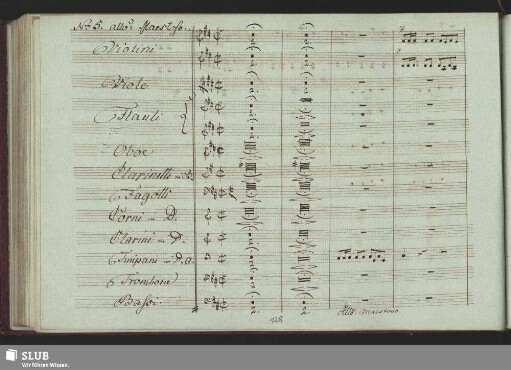 No. 5. allo. Maestoso.
Violini
Viole
Flauti
Oboe
Clarinetti in A.
Fagotti
Corni in D.
Clarini in D.
Timpani in D. a.
Trombone
Bassi.
allo. maestoso
128
SLUB
Wir führen Wissen.